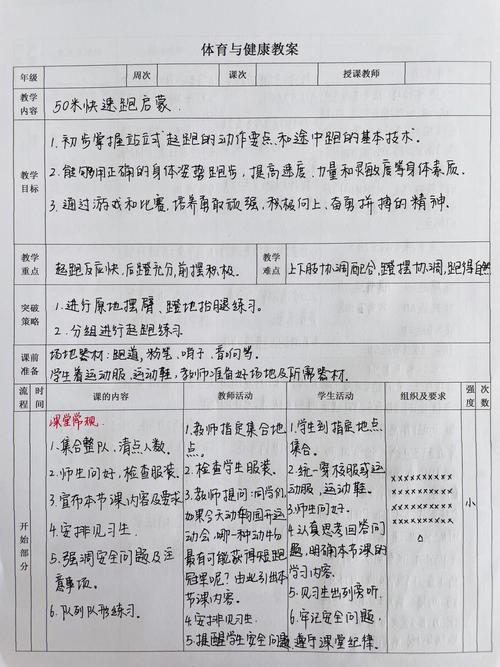 体育与健康教案
年级 周次 课次 授课教师
教学内容 50米快速跑启蒙.
教学目标 1.初步掌握站立式起跑的动作要点和途中跑的基本技术.
2.能够用正确的身体姿势跑步,提高速度、力量和灵敏度等身体素质.
3.通过游戏和比赛,培养勇敢顽强,积极向上,奋勇拼搏的精神.
教学重点 起跑反应快,后蹬充分,前摆积极. 教学难点 上下肢协调配合,蹬摆协调,跑得自然
突破策略 1.进行原地摆臂、蹬地抬腿练习.
2.分组进行起跑练习.
课前准备 场地器材:跑道,粉笔、哨子、音响等.
学生着运动服、运动鞋,教师准备好场地及所需器材.
流程 时间 课的内容 教师活动 学生活动 组织及要求 强度 次数
开始部分
课堂常规.
1.集合整队、清点人数.
2.师生问好,检查服装.
3.宣布本节课内容及要求
4.安排见习生.
5.强调安全问题及注
意事项.
6.队列队形练习.
1.教师指定集合地
点.
2.检查学生服装.
3.教师提问:同学们,
如果今天动物园开运
动会,哪一种动物
最有可能获得短跑
冠军呢?由此引出本
节课内容.
4.安排见习生.
5.提醒学生安全问题
1.学生到指定地点
集合.
2.统一穿校服或运
动服,运动鞋.
3.师生问好.
4.认真思考回答问
题,明确本节课的
学习内容.
5.见习生出列旁听.
6.牢记安全问题,
遵守课堂纪律.
xxxxxxxxx
xxxxxxxxx
xxxxxxxxx
xxxxxxxxx
△
小